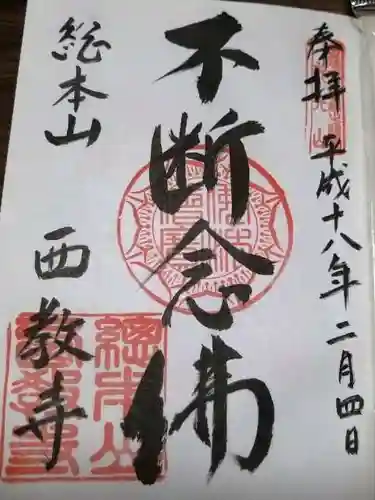 奉拝
平成十八年二月四日
不断念佛
総本山
西教寺